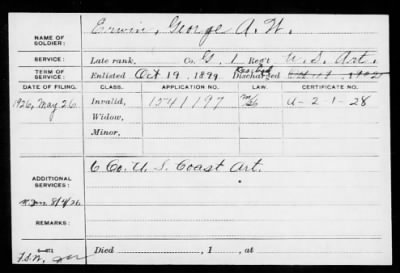 NAME OF SOLDIER: Erwin, George A. W.
SERVICE: Late rank, Co. G, 1 Reg't U. S. Art.
TERM OF SERVICE: Enlisted Oct 19, 1899 Discharged
DATE OF FILING. CLASS. APPLICATION NO. LAW. CERTIFICATE NO.
1926, May 26. Invalid, 1541197 U-2-1-28
Widow,
Minor,
ADDITIONAL SERVICES: 6 Co. U. S. Coast Art.
REMARKS:
Died , 1 , at